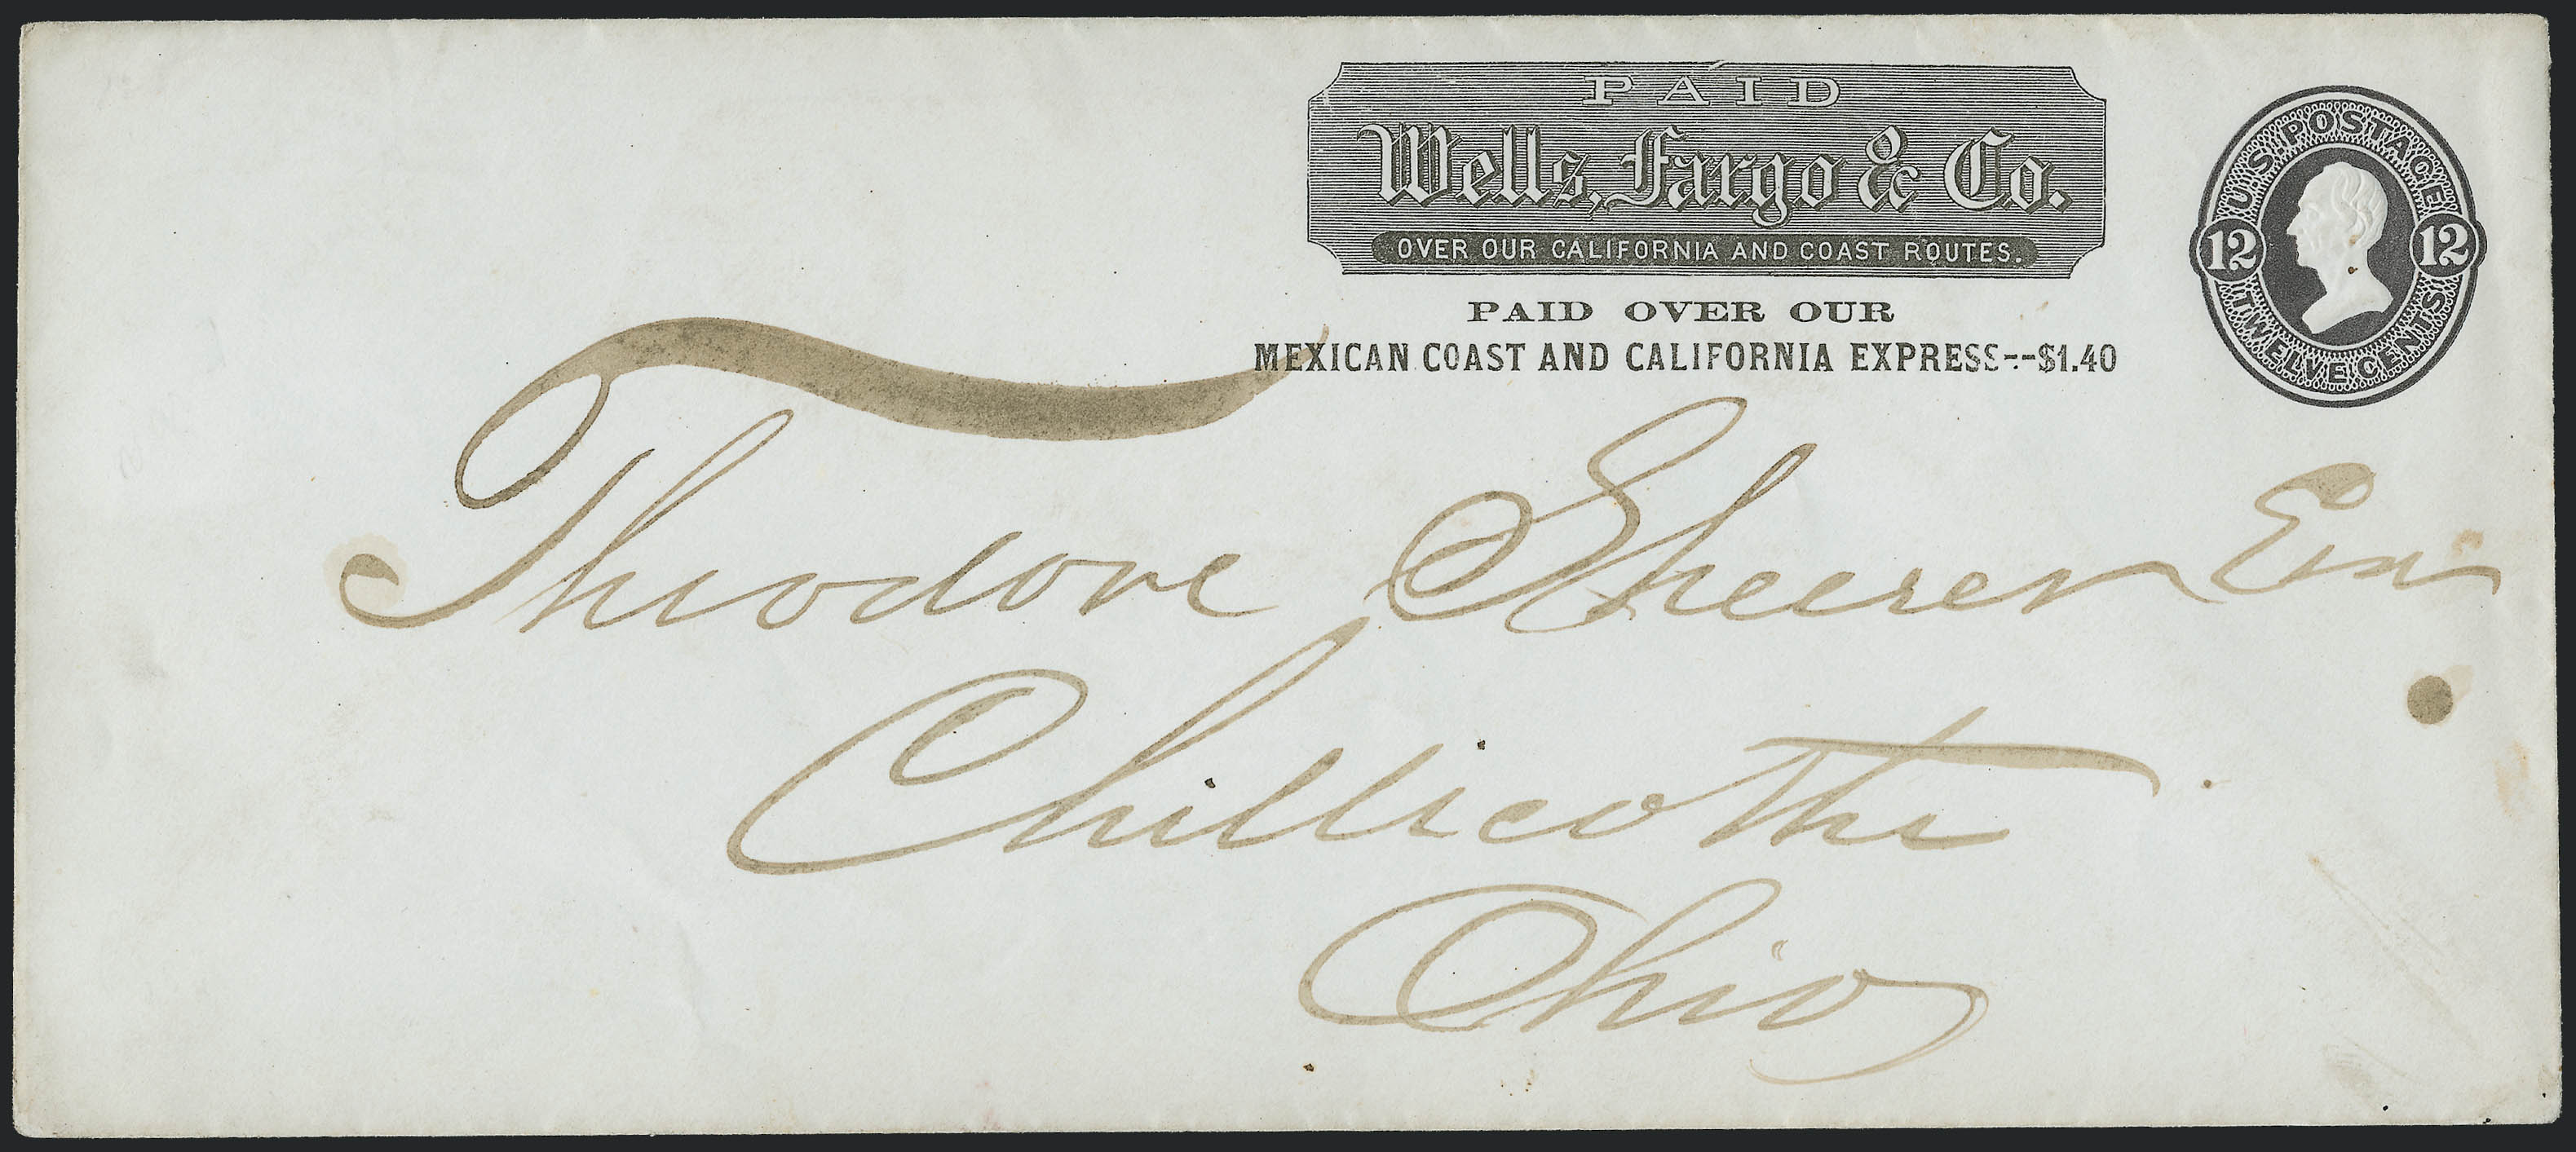 PAID
Wells, Fargo & Co.
OVER OUR CALIFORNIA AND COAST ROUTES.
PAID OVER OUR
MEXICAN COAST AND CALIFORNIA EXPRESS--$1.40
U.S. POSTAGE
12 12
TWELVE CENTS
Theodore Sheerer
Chillicothe
Ohio